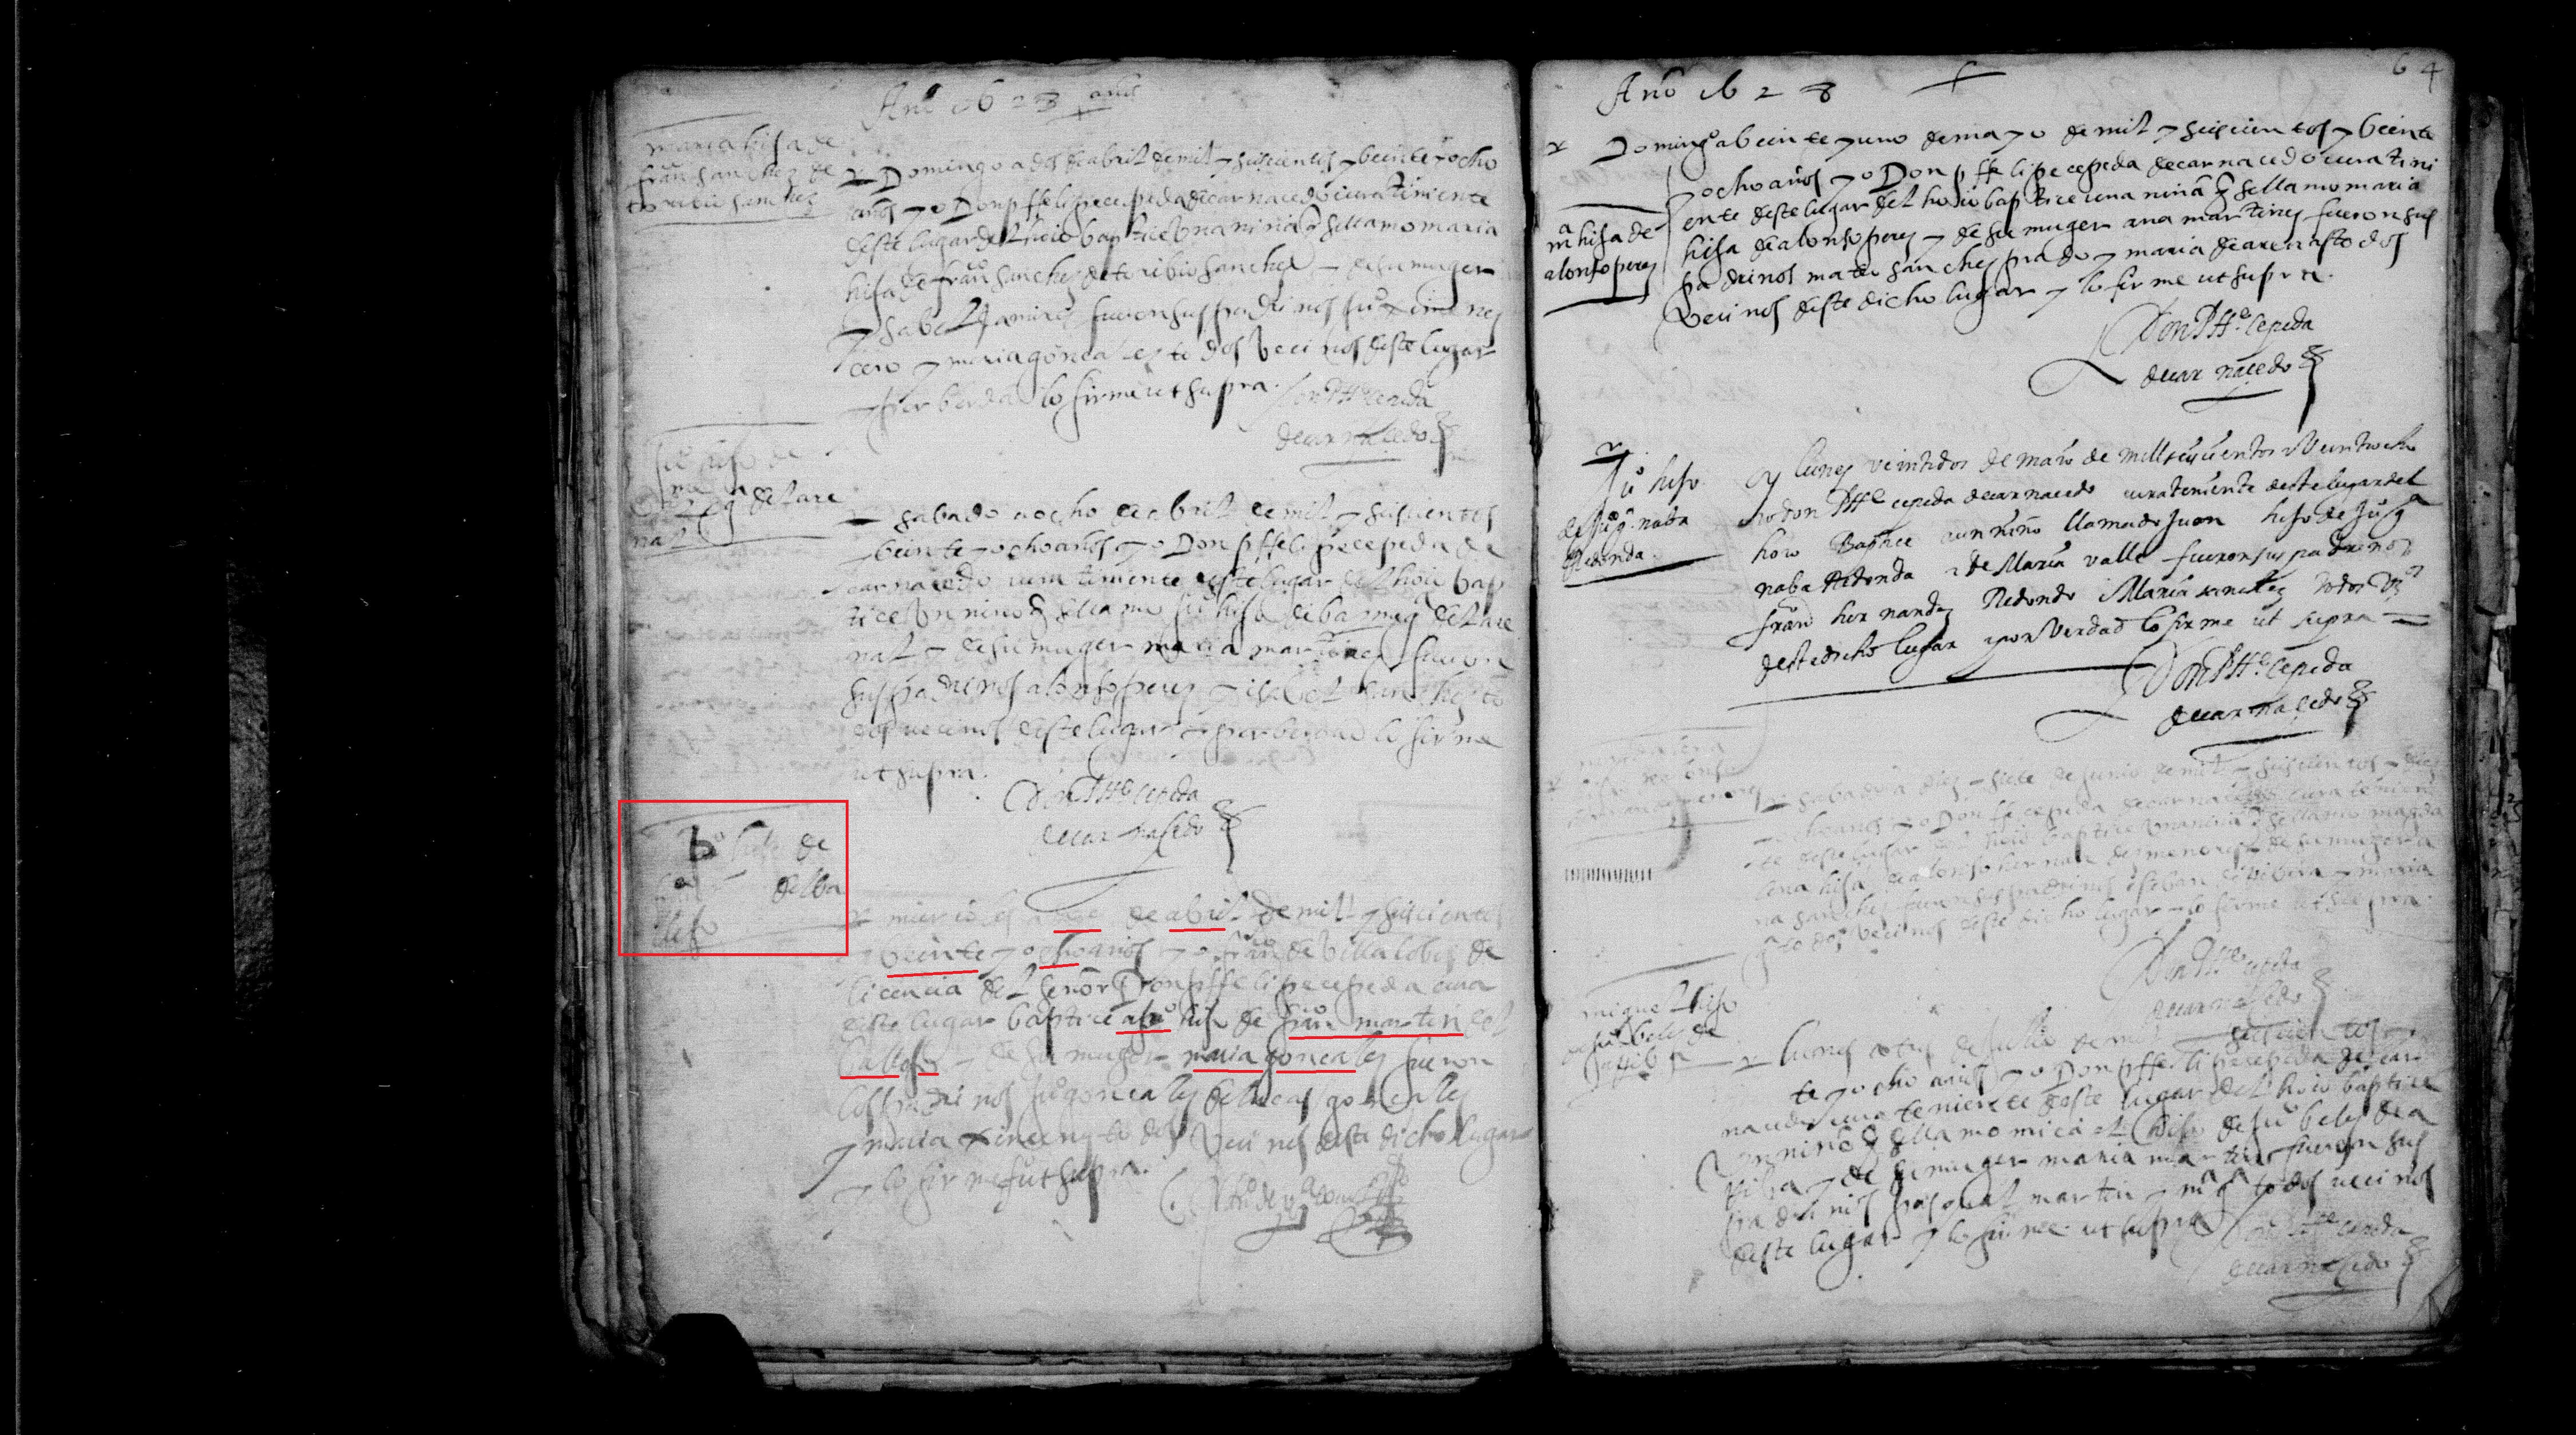 Año 1628 años
maria hija de
franco sanchez de
toribio sanchez
Domingo a dos de abril de mil y seiscientos y beinte y ocho
años yo Don pffelipe cepeda de carnacedo cura tiniente
deste lugar del hoio baptice una niña q se llamo maria
hija de franco sanchez de toribio sanchez y de su muger
ysabel Ramirez fueron sus padrinos juo ximenez
cero y maria gonçalez todos vecinos deste lugar
y por berdad lo firme ut supra.
Don Phe cepeda
de carnacedo
juo hijo de
del are
nal
sabado a ocho de abril de mil y seiscientos
beinte y ocho años yo Don pffelipe cepeda de
carnacedo cura tiniente deste lugar del hoio bap
tice un niño q se llamo juo hijo de del are
nal y de su muger maria martinez fueron
sus padrinos alonso perez y isabel sanchez to
dos vecinos deste lugar y por berdad lo firme
ut supra.
Don Phe cepeda
de carnacedo
hijo de
del ca
llejo
miercoles a de abril de mil y seiscientos
y beinte y ocho años yo franco de Villalobos de
licencia del señor Don pffelipe cepeda cura
deste lugar baptice a juo hijo de franco martin del
Callejo y de su muger maria gonçalez fueron
los padrinos juo gonçalez de lucas gonçalez
y maria ximenez todos Vecinos deste dicho lugar
y lo firme ut supra.
64
Año 1628
Domingo a beinte y uno de mayo de mil y seiscientos y beinte
y ocho años yo Don pffelipe cepeda de carnacedo cura tini
ente deste lugar del hoio baptice una niña q se llamo maria
hija de alonso perez y de su muger ana martinez fueron sus
padrinos mateo sanchez prado y maria de arenas todos
vecinos deste dicho lugar y lo firme ut supra.
ma hija de
alonso perez
Don Phe cepeda
de carnacedo
Juo hijo
de juo ga naba
Redonda.
lunes veintidos de maio de mill seiscientos Veintiocho
yo don Phe cepeda de carnacedo cura teniente deste lugar del
hoio Baptice a un niño llamado Juan hijo de Juo ga
naba Redonda i de Maria valle fueron sus padrinos
franco hernandez Redondo i Maria sanchez todos Vos
deste dicho lugar i por Verdad lo firme ut supra
Don Phe cepeda
de carnacedo
sabado a diez y siete de junio de mil y seiscientos y beinte
y ocho años yo Don ffe cepeda de carnacedo cura tenien
te deste lugar del hoio baptice una niña q se llamo magda
lena hija de alonso hernandez menor y de su muger a
na sanchez fueron sus padrinos esteban de Ribera y maria
todos vecinos deste dicho lugar y lo firme ut supra
Don Phe cepeda
de carnacedo
miguel hijo
de juo belez de
lunes a tres de jullio de mil y seiscientos
y ocho años yo Don pffelipe cepeda de car
nacedo cura teniente deste lugar del hoio baptice
un niño q se llamo miguel hijo de juo belez de a
y de su muger maria martin fueron sus
padrinos pasqual martin y ma ga todos vecinos
deste lugar y lo firme ut supra
Don Phe cepeda
de carnacedo